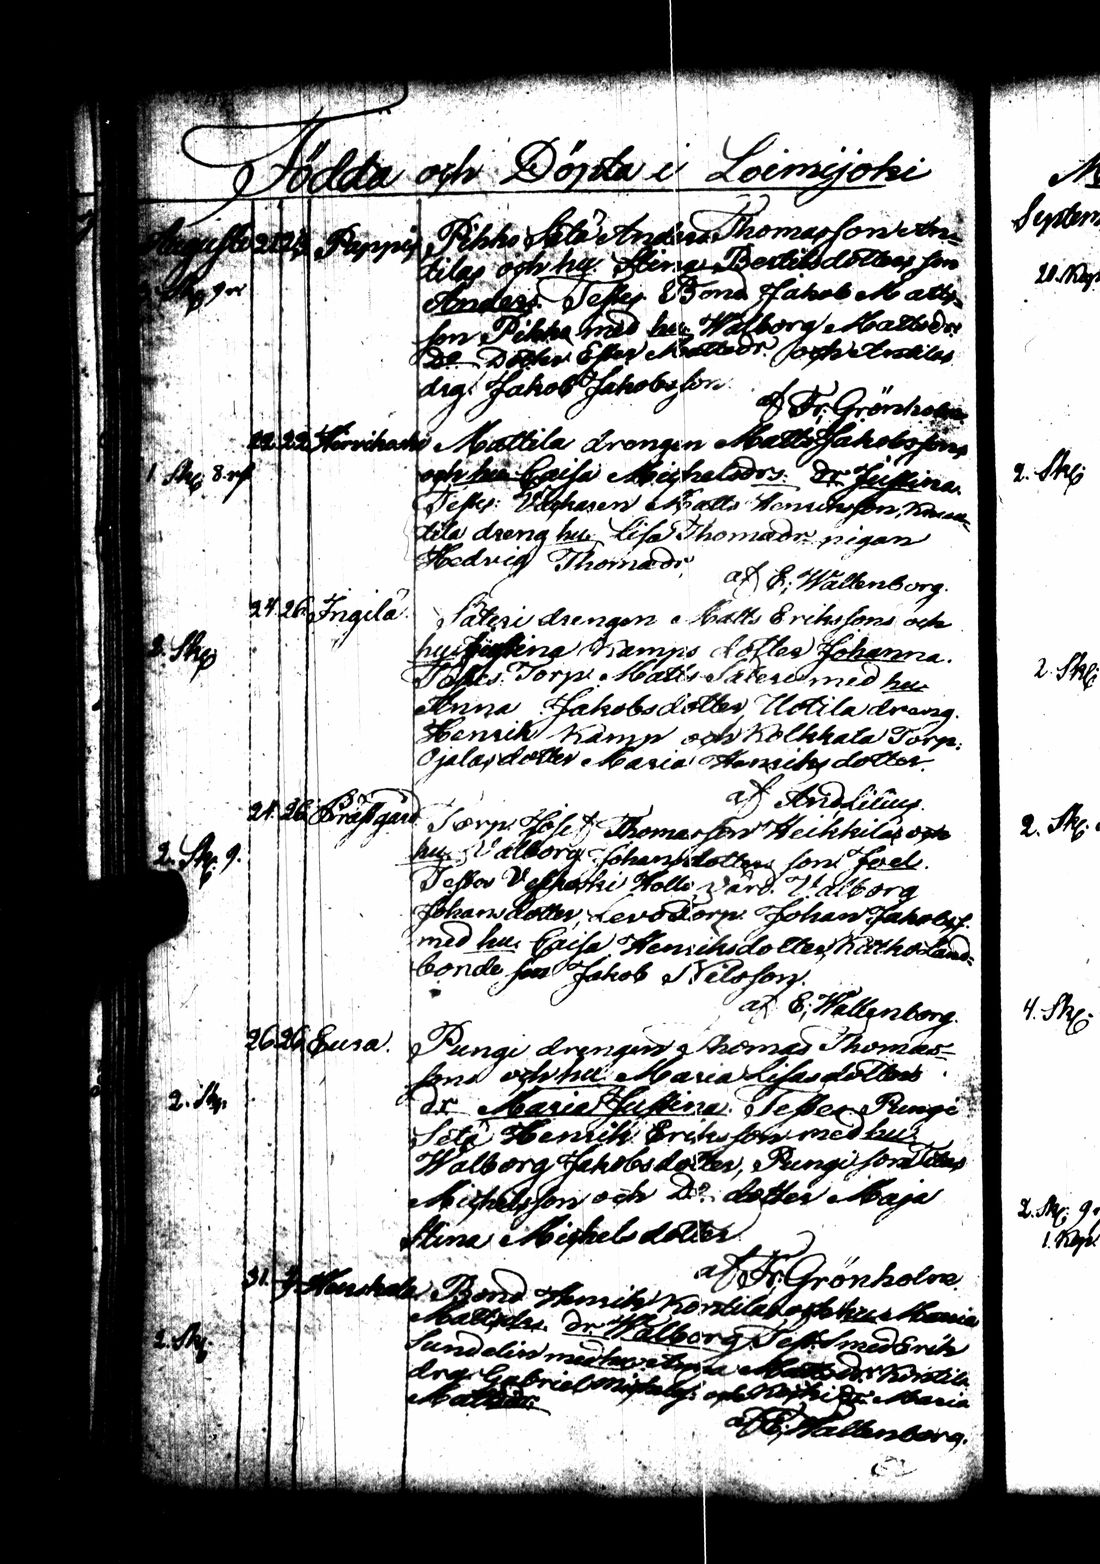 Födda och Döpta i Loimijoki
Augusti 21. 23. Pappis Pihko Sätä Anders Thomasson An-
tilas och hu. Stina Bertilsdotters son
Anders. Testes Bond. Jakob Matts-
son Pihko med hu. Walborg Mattsdr
Do Dotter Ester Mattsdr. och Antilas
drg. Jakob Jakobsson.
af Fr. Grönholm
22. 22. Mattila drengen Matts Jakobssons
och hu. Caisa Michelsdrs. dr Justina.
1. Sk. 8 rs
Testes: Matts Henriksson,
tila dreng hu. Lisa Thomasdr. pigan
Hedvig Thomasdr.
af E. Wallenborg.
24. 26. Ingilä. Säteri drengen Matts Erikssons och
hu. Justina Kamps dotter Johanna.
2. Sk
Testes. Torp. Matts Säteri med hu.
Anna Jakobsdotter Uotila dreng.
Henrik Kamp och Kolkkala Torp.
Ojalas dotter Maria Henriksdotter.
af And Lilius.
24. 26. Prästgård Torp. Josef Thomasson Heikkiläs och
hu. Walborg Johansdotters son Joel.
2. Sk. 9.
Testes Vesikoski Holl. värd. Walborg
Johansdotter, Levo Torp. Johan Jakobs.
med hu. Caisa Henriksdotter, Land-
bonde son Jakob Nilsson.
af E. Wallenborg.
26. 26. Eura. Pungi drengen Thomas Thomas-
sons och hu. Maria Lisasdotters
2. Sk.
dr Maria Justina. Testes Pungi
Sätä Henrik Eriksson med hu.
Walborg Jakobsdotter, Pungi son
Michelsson och Do. dotter Maja
Stina Michelsdotter.
af Fr. Grönholm
31. Bond Henrik Korttilas och hu. Maria
Mattsdrs. dr Walborg. Test. Smed Erik
2. Sk.
Sundelin med hu. Anna Mattsdr. Korttila
drg. Gabriel Michels. och Maria
Mattsdr.
af E. Wallenborg.
Septem
2. Sk
2. Sk
2. Sk.
4. Sk.
2. Sk. 9
1. Kop.